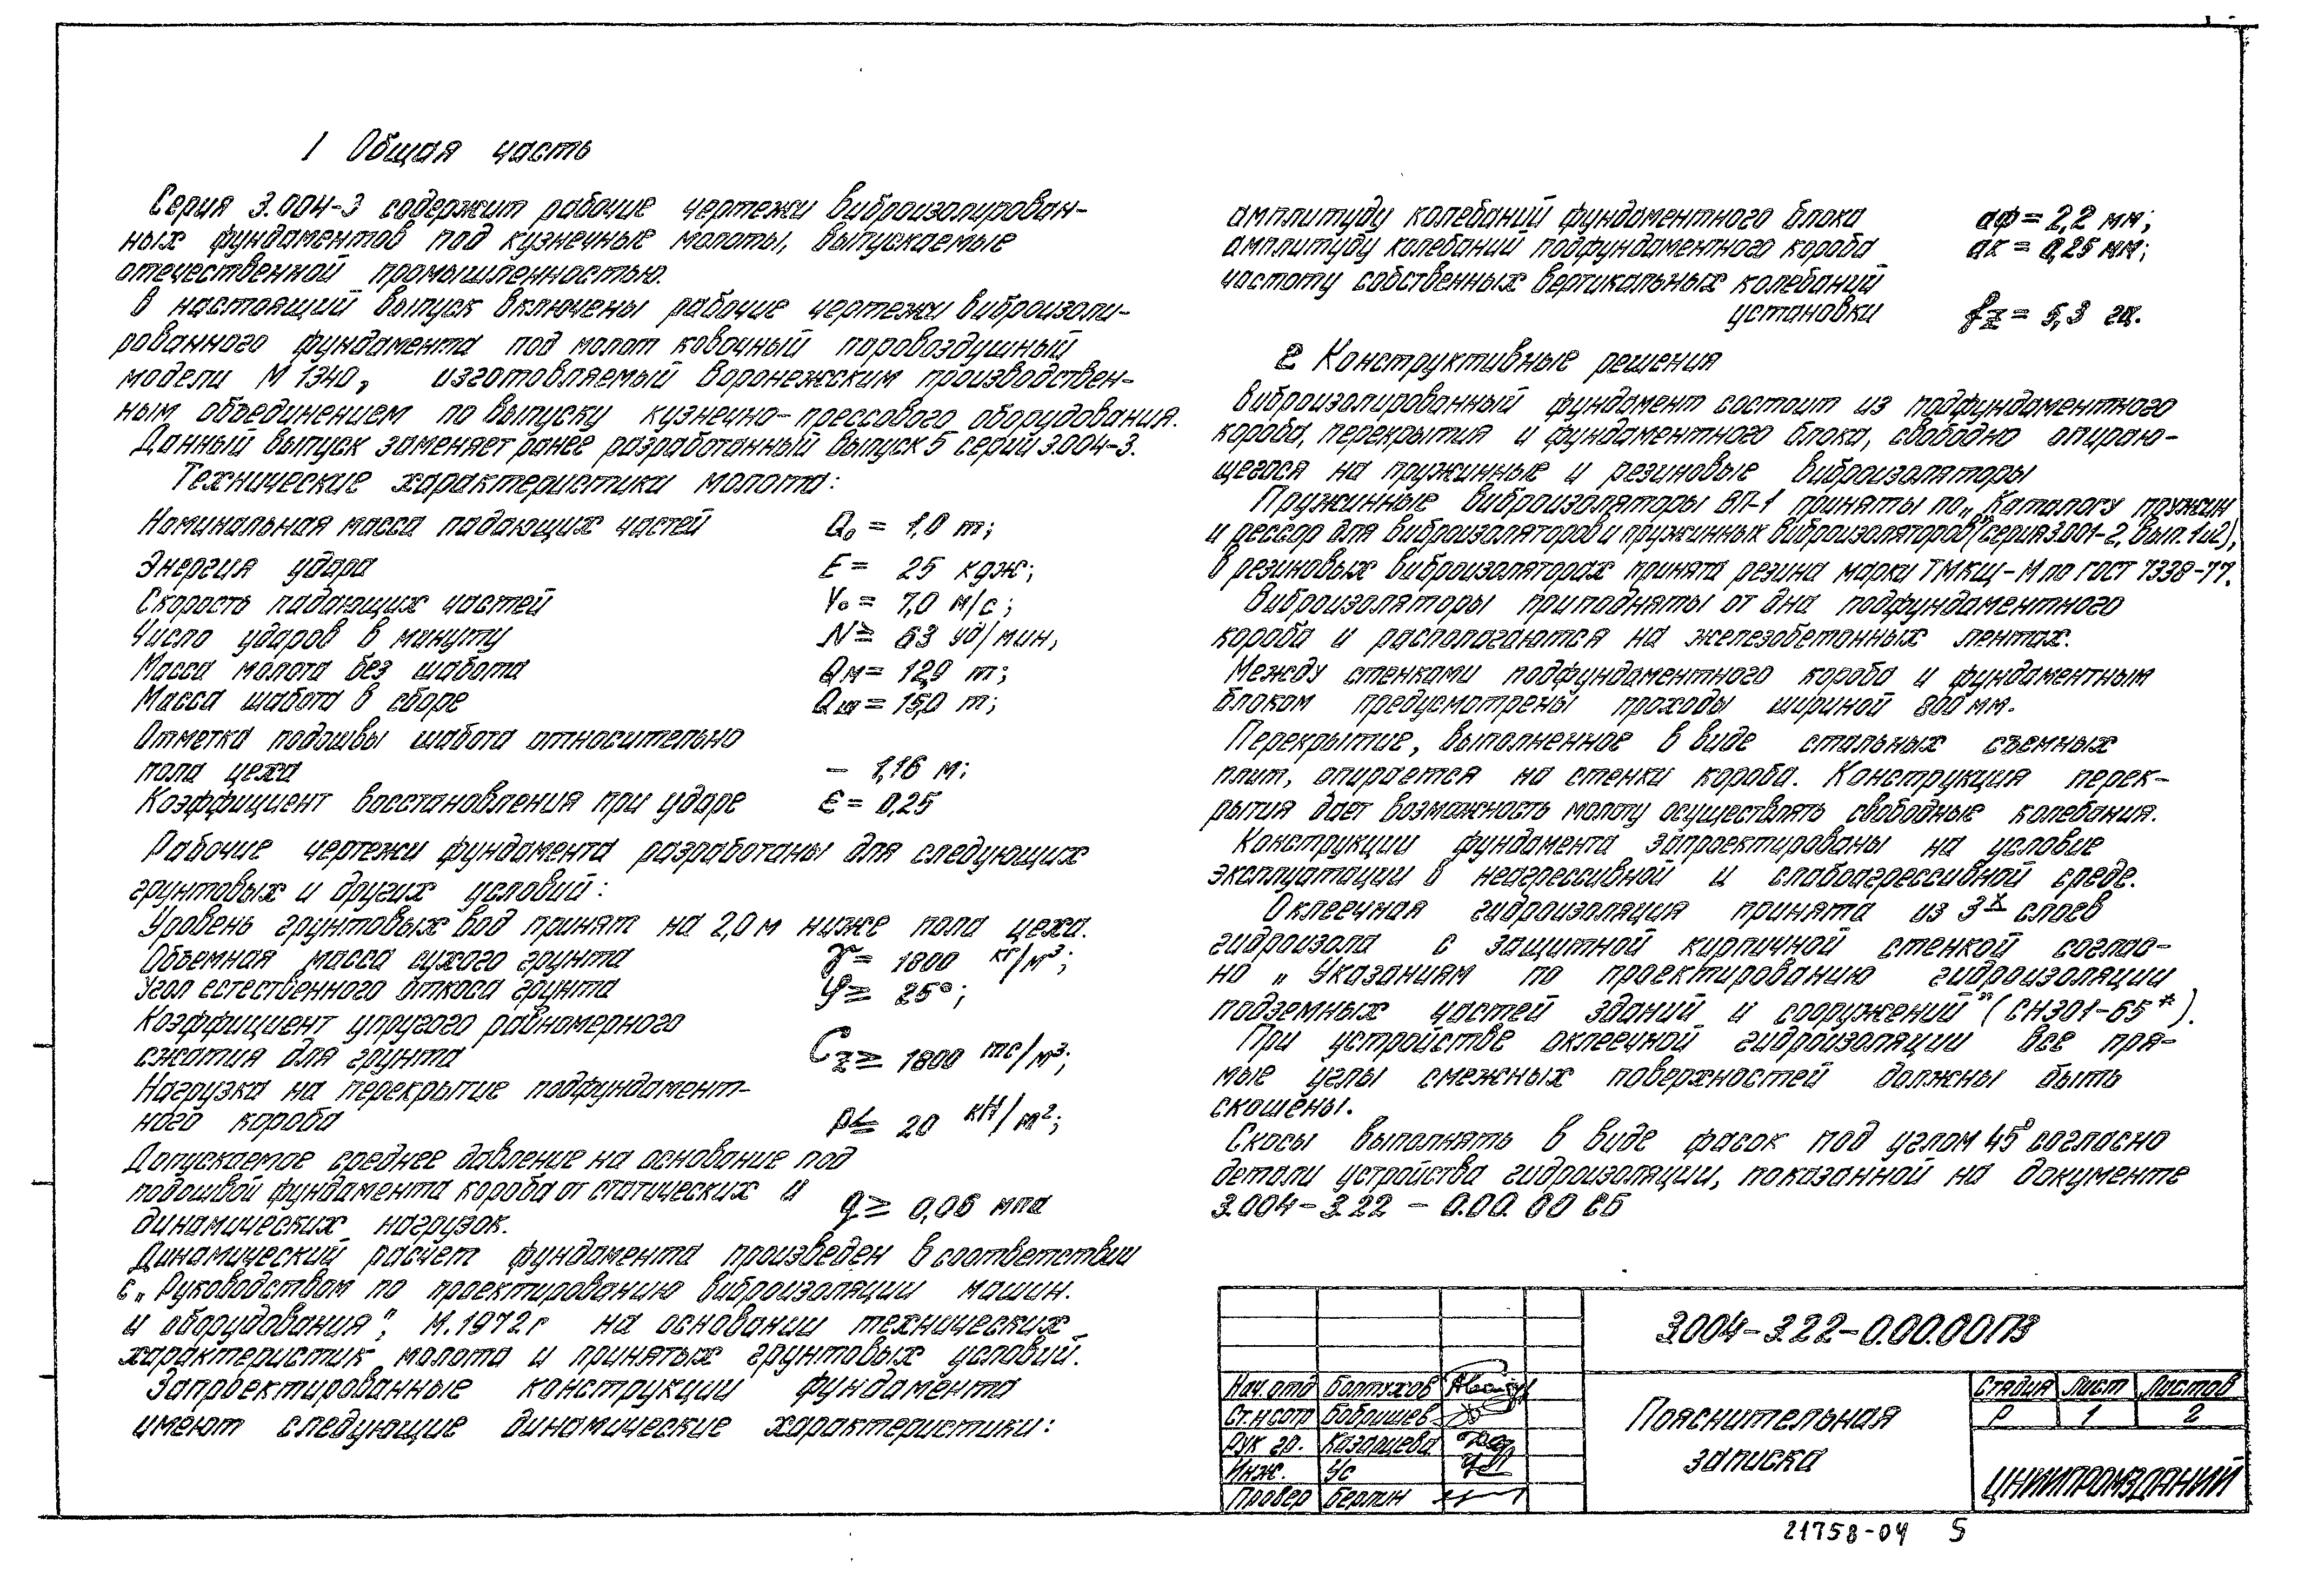 1 Общая часть
Серия 3.004-3 содержит рабочие чертежи виброизолирован-
ных фундаментов под кузнечные молоты, выпускаемые
отечественной промышленностью.
В настоящий выпуск включены рабочие чертежи виброизоли-
рованного фундамента под молот ковочный паровоздушный
модели М 1340, изготовляемый Воронежским производствен-
ным объединением по выпуску кузнечно-прессового оборудования.
Данный выпуск заменяет ранее разработанный выпуск 5 серий 3.004-3.
Технические характеристики молота:
Номинальная масса падающих частей Q₀ = 1,0 т;
Энергия удара E = 25 кдж;
Скорость падающих частей V₀ = 7,0 м/с;
Число ударов в минуту N ≥ 63 уд/мин,
Масса молота без шабота Qм = 12,9 т;
Масса шабота в сборе Qш = 15,0 т;
Отметка подошвы шабота относительно
пола цеха - 1,16 м;
Коэффициент восстановления при ударе ε = 0,25
Рабочие чертежи фундамента разработаны для следующих
грунтовых и других условий:
Уровень грунтовых вод принят на 2,0 м ниже пола цеха.
Объемная масса сухого грунта γ = 1800 кг/м³;
Угол естественного откоса грунта φ ≥ 25°;
Коэффициент упругого равномерного
сжатия для грунта Cz ≥ 1800 тс/м³;
Нагрузка на перекрытие подфундамент-
ного короба p ≤ 20 кН/м²;
Допускаемое среднее давление на основание под
подошвой фундамента короба от статических и
динамических нагрузок. q ≥ 0,06 мпа
Динамический расчет фундамента произведен в соответствии
с „Руководством по проектированию виброизоляции машин.
и оборудования", М. 1972 г на основании технических
характеристик молота и принятых грунтовых условий.
Запроектированные конструкции фундамента
имеют следующие динамические характеристики:
амплитуду колебаний фундаментного блока aф = 2,2 мм;
амплитуду колебаний подфундаментного короба aк = 0,25 мм;
частоту собственных вертикальных колебаний
установки fz = 5,3 гц.
2 Конструктивные решения
Виброизолированный фундамент состоит из подфундаментного
короба, перекрытия и фундаментного блока, свободно опираю-
щегося на пружинные и резиновые виброизоляторы
Пружинные виброизоляторы ВП-1 приняты по „Каталогу пружин
и рессор для виброизоляторов и пружинных виброизоляторов" (серия 3.001-2, вып. 1и2),
в резиновых виброизоляторах принята резина марки ТМКЩ-М по ГОСТ 7338-77.
Виброизоляторы приподняты от дна подфундаментного
короба и располагаются на железобетонных лентах.
Между стенками подфундаментного короба и фундаментным
блоком предусмотрены проходы шириной 800 мм.
Перекрытие, выполненное в виде стальных съемных
плит, опирается на стенки короба. Конструкция перек-
рытия дает возможность молоту осуществлять свободные колебания.
Конструкции фундамента запроектированы на условие
эксплуатации в неагрессивной и слабоагрессивной среде.
Оклеечная гидроизоляция принята из 3х слоев
гидроизола с защитной кирпичной стенкой соглас-
но „Указаниям по проектированию гидроизоляции
подземных частей зданий и сооружений" (СН301-65*).
При устройстве оклеечной гидроизоляции все пря-
мые углы смежных поверхностей должны быть
скошены.
Скосы выполнять в виде фасок под углом 45° согласно
детали устройства гидроизоляции, показанной на документе
3.004-3.22 - 0.00.00 СБ
3.004-3.22-0.00.00ПЗ
Нач.отд Болтухов
Ст.н сотр Бобришев
Рук гр. Казарцева
Инж. Ус
Провер Берлин
Пояснительная
записка
Стадия Лист Листов
Р 1 2
ЦНИИПРОМЗДАНИЙ
21758-04 5